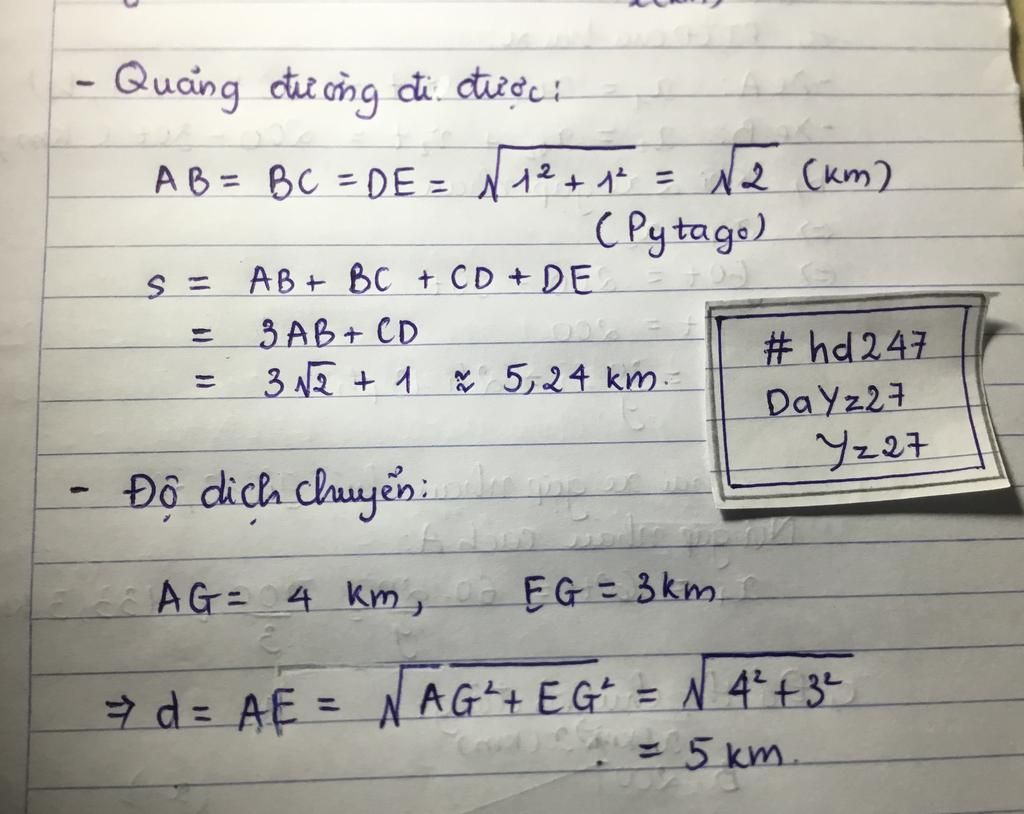 - Quảng đường đi được:
AB = BC = DE = √1² + 1² = √2 (km)
(Pytago)
s = AB + BC + CD + DE
= 3AB + CD
= 3√2 + 1 ≈ 5,24 km.
# hd247
DaYz27
Yz27
- Độ dịch chuyển:
AG = 4 km, EG = 3km
⇒ d = AE = √AG² + EG² = √4² + 3²
= 5 km.